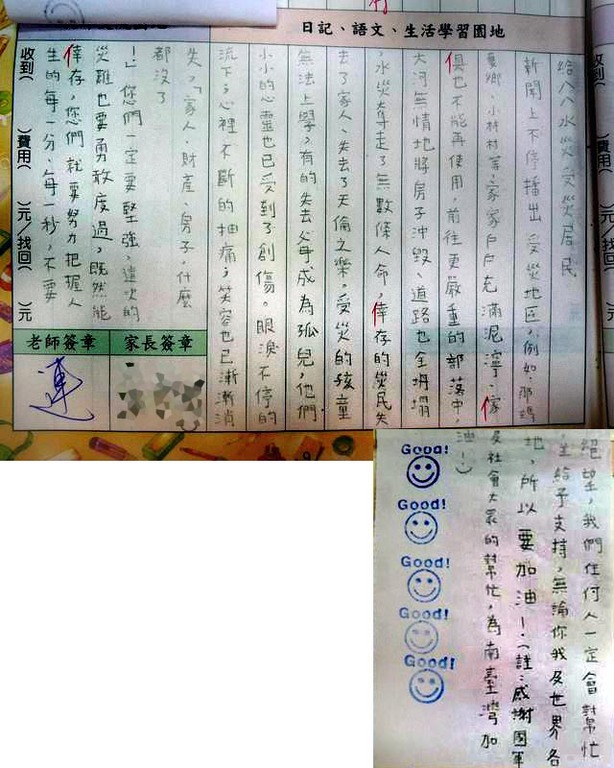 日記、語文、生活學習園地
給八八水災受災居民
新聞上不停播出受災地區,例如:那瑪
夏鄉、小林村等,家家戶戶充滿泥濘、傢
俱也不能再使用,前往更嚴重的部落中,
大河無情地將房子沖毀、道路也全坍塌
,水災奪走了無數條人命,倖存的災民失
去了家人、失去了天倫之樂,受災的孩童
無法上學,有的失去父母成為孤兒,他們
小小的心靈也已受到了創傷。眼淚不停的
流下;心裡不斷的抽痛;笑容也已漸漸消
失,「家人、財產、房子,什麼
都沒了
!」您們一定要堅強,這次的
災難也要勇敢度過,既然能
倖存,您們就要努力把握人
生的每一分、每一秒,不要
家長簽章
老師簽章
連
收到( )費用( )元/找回( )元
收到( )費用( )元/找回( )元
絕望,我們任何人一定會幫忙
,並給予支持,無論你我及世界各
地,所以要加油!(註:感謝國軍
及社會大眾的幫忙,為南臺灣加
油!)
Good!
Good!
Good!
Good!
Good!